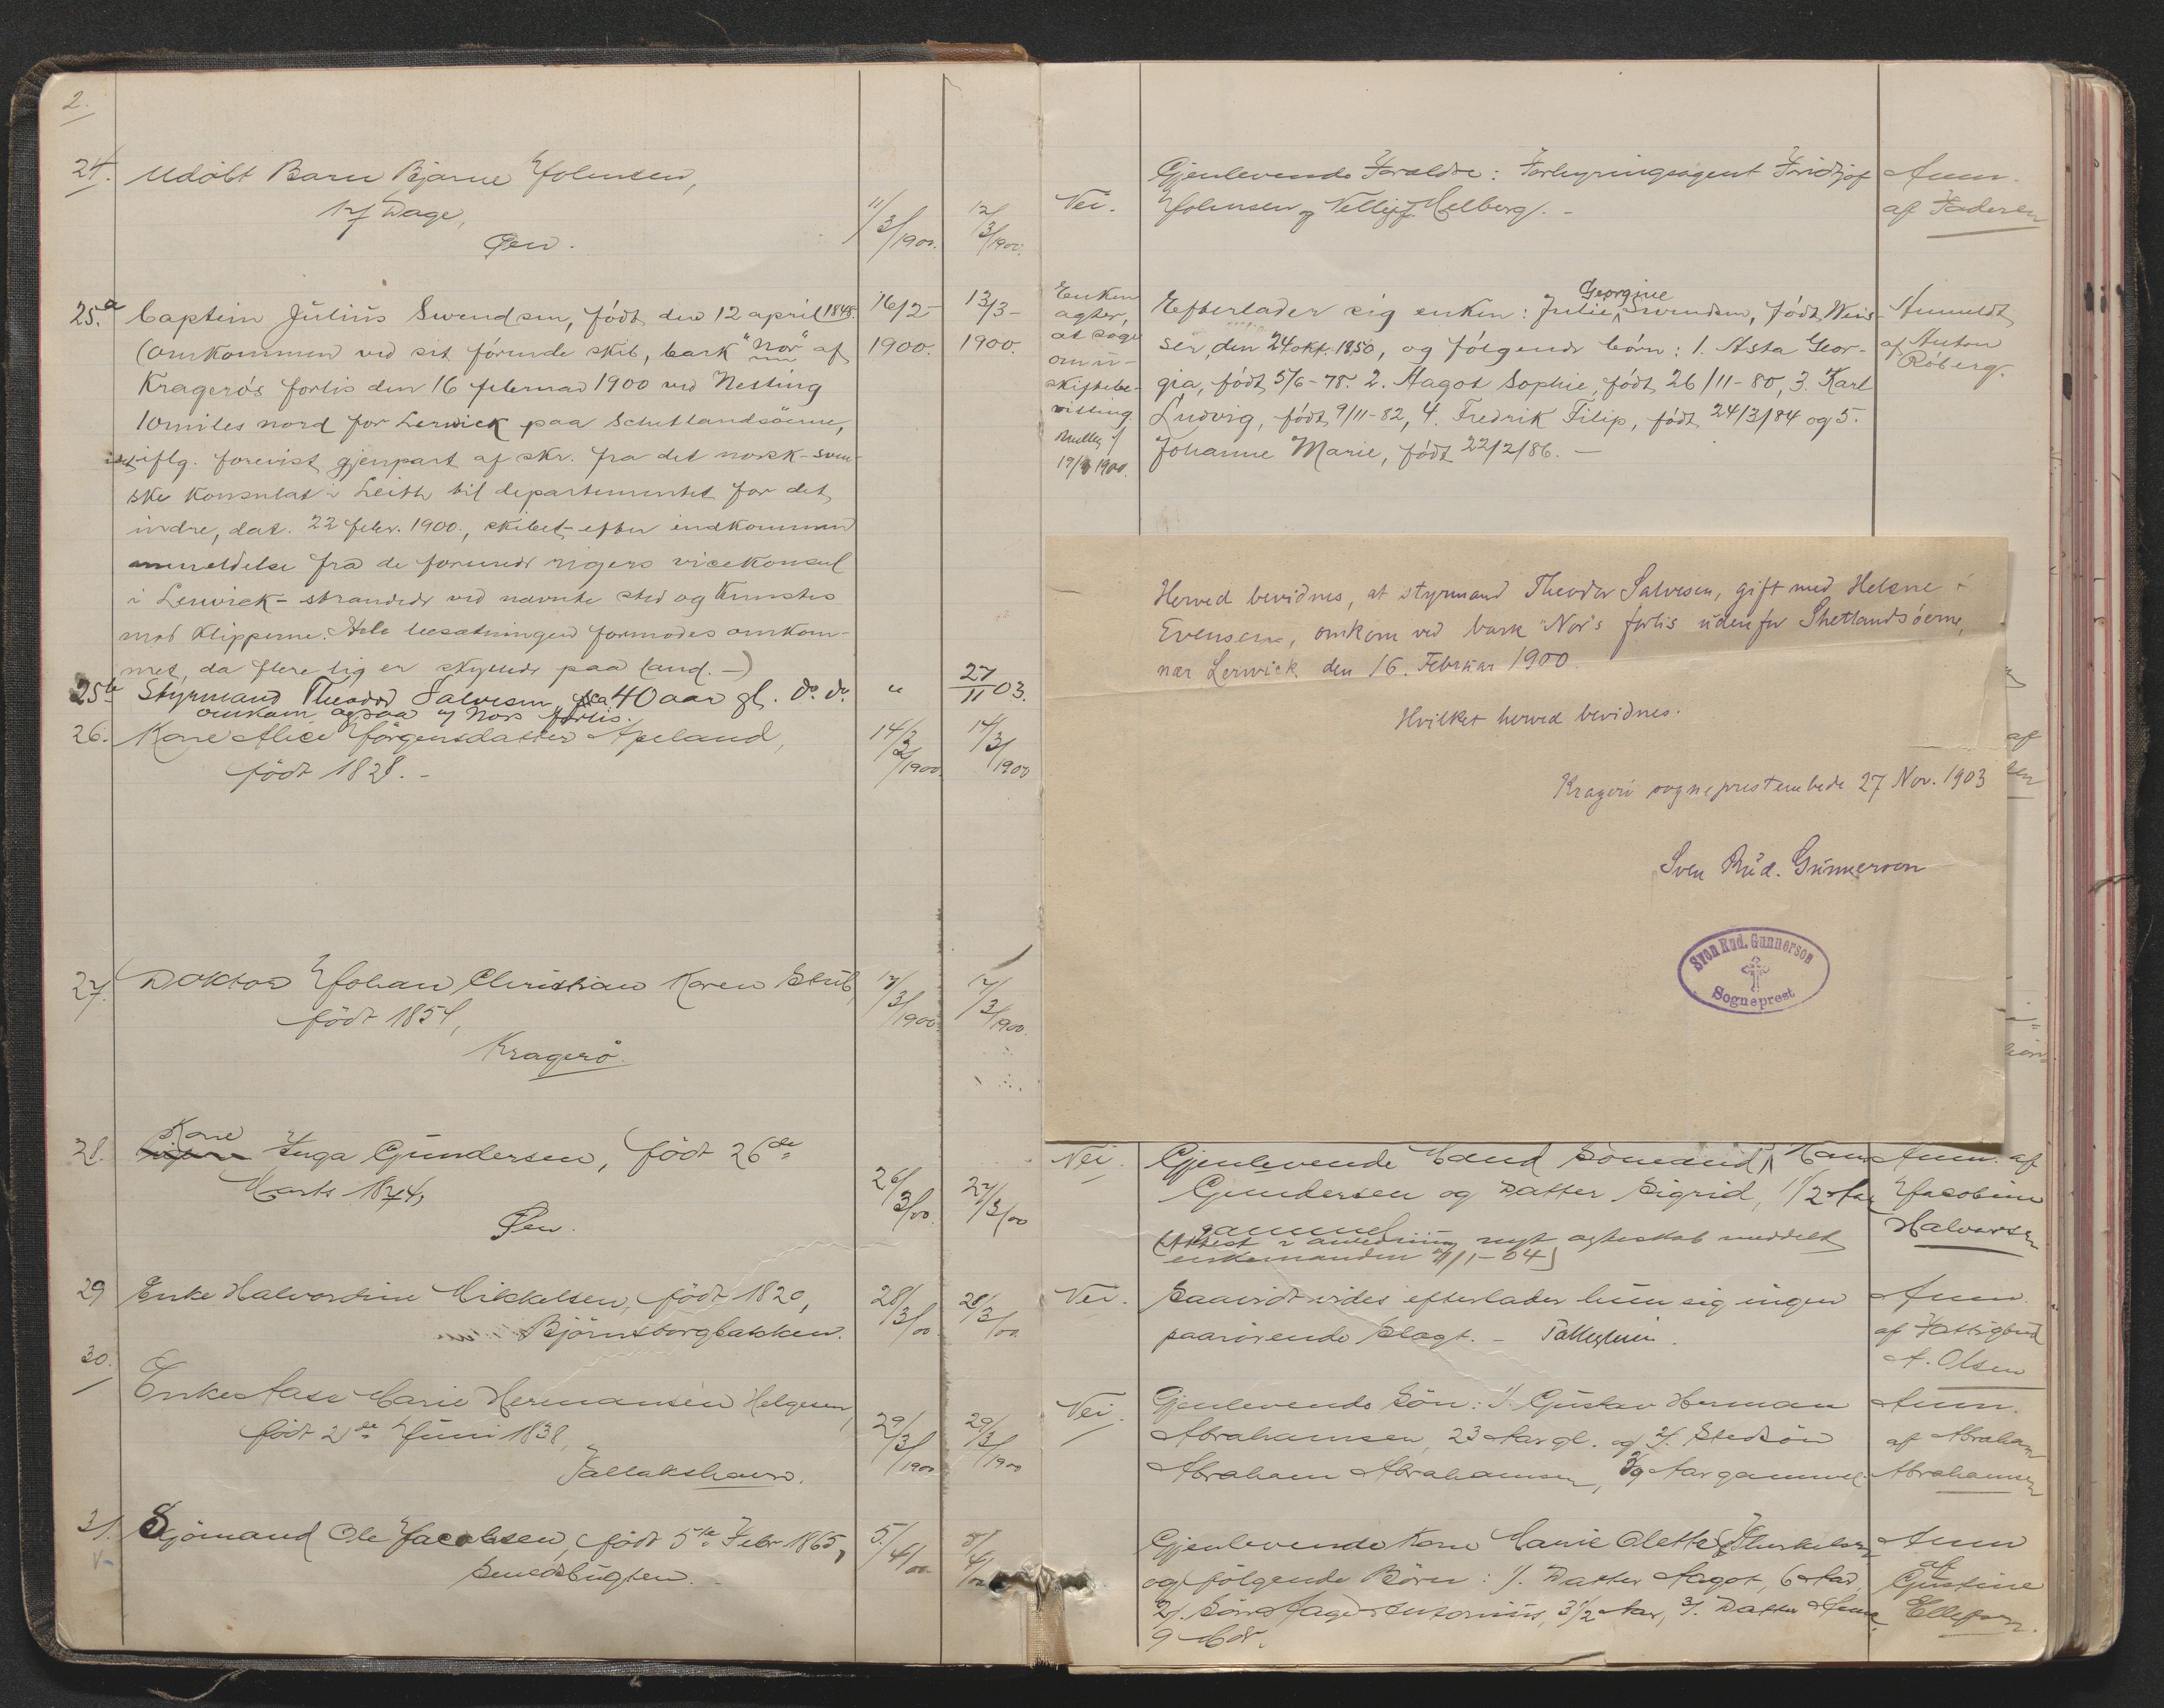 2.
24. Udöbt Barn Bjarne Johnsen,
17 Dage,
Øen.
11/3/1900. 12/3/1900.
25.a Captein Julius Svendsen, födt den 12 april 1848.
(omkommen ved sit förende skib, bark "Nor" af
Kragerös forlis den 16 februar 1900 ved Nesting
10 miles nord for Lerwick paa Schetlandsöerne,
iflg. forevist gjenpart af skr. fra det norsk-sven-
ske Konsulat i Leith til departementet for det
indre, dat. 22 febr. 1900., skibet efter indkommen
anmeldelse fra de forenede rigers vicekonsul
i Lerwick - strandede ved nævnte sted og knustes
mod Klipperne. Hele besætningen formodes omkom-
met, da flere lig er skyllede paa land. -)
16/2 - 1900. 13/3 - 1900.
25b Styrmand Theodor Salvesen, ca 40 aar gl. do. do.
omkom ogsaa v/ Nors forlis.
" 27/11 03.
26. Kone Alice Jörgensdatter Apeland,
födt 1828. -
14/3/1900 14/3/1900
27. Doktor Johan Christian Koren Stub,
födt 1851,
Kragerö.
17/3/1900. 17/3/1900.
28. Kone Inga Gundersen, födt 26de
Marts 1874,
Øen.
26/3/00. 27/3/00
29 Enke Halvordine Mikkelsen, födt 1820,
Björnsborgbakken.
28/3/00 28/3/00.
30. Enke Aase Marie Hermansen Helgesen,
födt 2de Juni 1838,
Tallakshavn.
29/3/1900 29/3/1900
31. Sjömand Ole Jacobsen, födt 5te Febr 1865,
Smedsbugten.
5/4/00. 5/4/00
Nei. Gjenlevende Forældre: Forhyringsagent Fridtjof
Johnsen og Nelly f. Melberg. -
Anm.
af Faderen
Enken
agter,
at söge
om u-
skiftebe-
villing
19/3 1900.
Georgine
Efterlader sig enken: Julie Svendsen, födt Weis-
ser, den 24 okt. 1850, og fölgende börn: 1. Asta Geor-
gia, födt 5/6-78. 2. Aagot Sophie, födt 26/11-80, 3. Karl
Ludvig, födt 9/11-82, 4. Fredrik Filip, födt 24/3/84 og 5.
Johanne Marie, födt 22/2/86. -
Anmeldt
af Anton
Röberg.
Herved bevidnes, at styrmand Theodor Salvesen, gift med Helene f.
Evensen, omkom ved bark "Nor"s forlis udenfor Shetlandsöerne,
nær Lerwick den 16. Februar 1900.
Hvilket herved bevidnes.
Kragerö sogneprestembede 27 Nov. 1903
Sven Rud. Gunnerson
Sven Rud. Gunnerson
Sogneprest
af
Nei. Gjenlevende Mand Sömand Hans
Gundersen og Datter Sigrid, 1 1/2 Aar
gammel
(Attest i anledning nyt ægteskab meddelt
enkemanden 11/1-04)
Anm. af
Jacobine
Halvorsen
Nei. Saavidt vides efterlader hun sig ingen
paarörende Slægt. -
Anm.
af Fattigbud
A. Olsen
Nei. Gjenlevende Sön: 1/. Gustav Herman
Abrahamsen, 23 Aar gl. og 2/. Stedsön
Abraham Abrahamsen, 39 Aar gammel.
Anm.
af Abraham
Abrahamsen
Gjenlevende Kone Marie Olette f. Thorkelsen
og fölgende Börn: 1/. Datter Aagot, 6 Aar,
2/. Sön Aage Antonius, 3 1/2 Aar, 3/. Datter Anna
9 Mdr.
Anm
af
Gustine
Ellefsen.